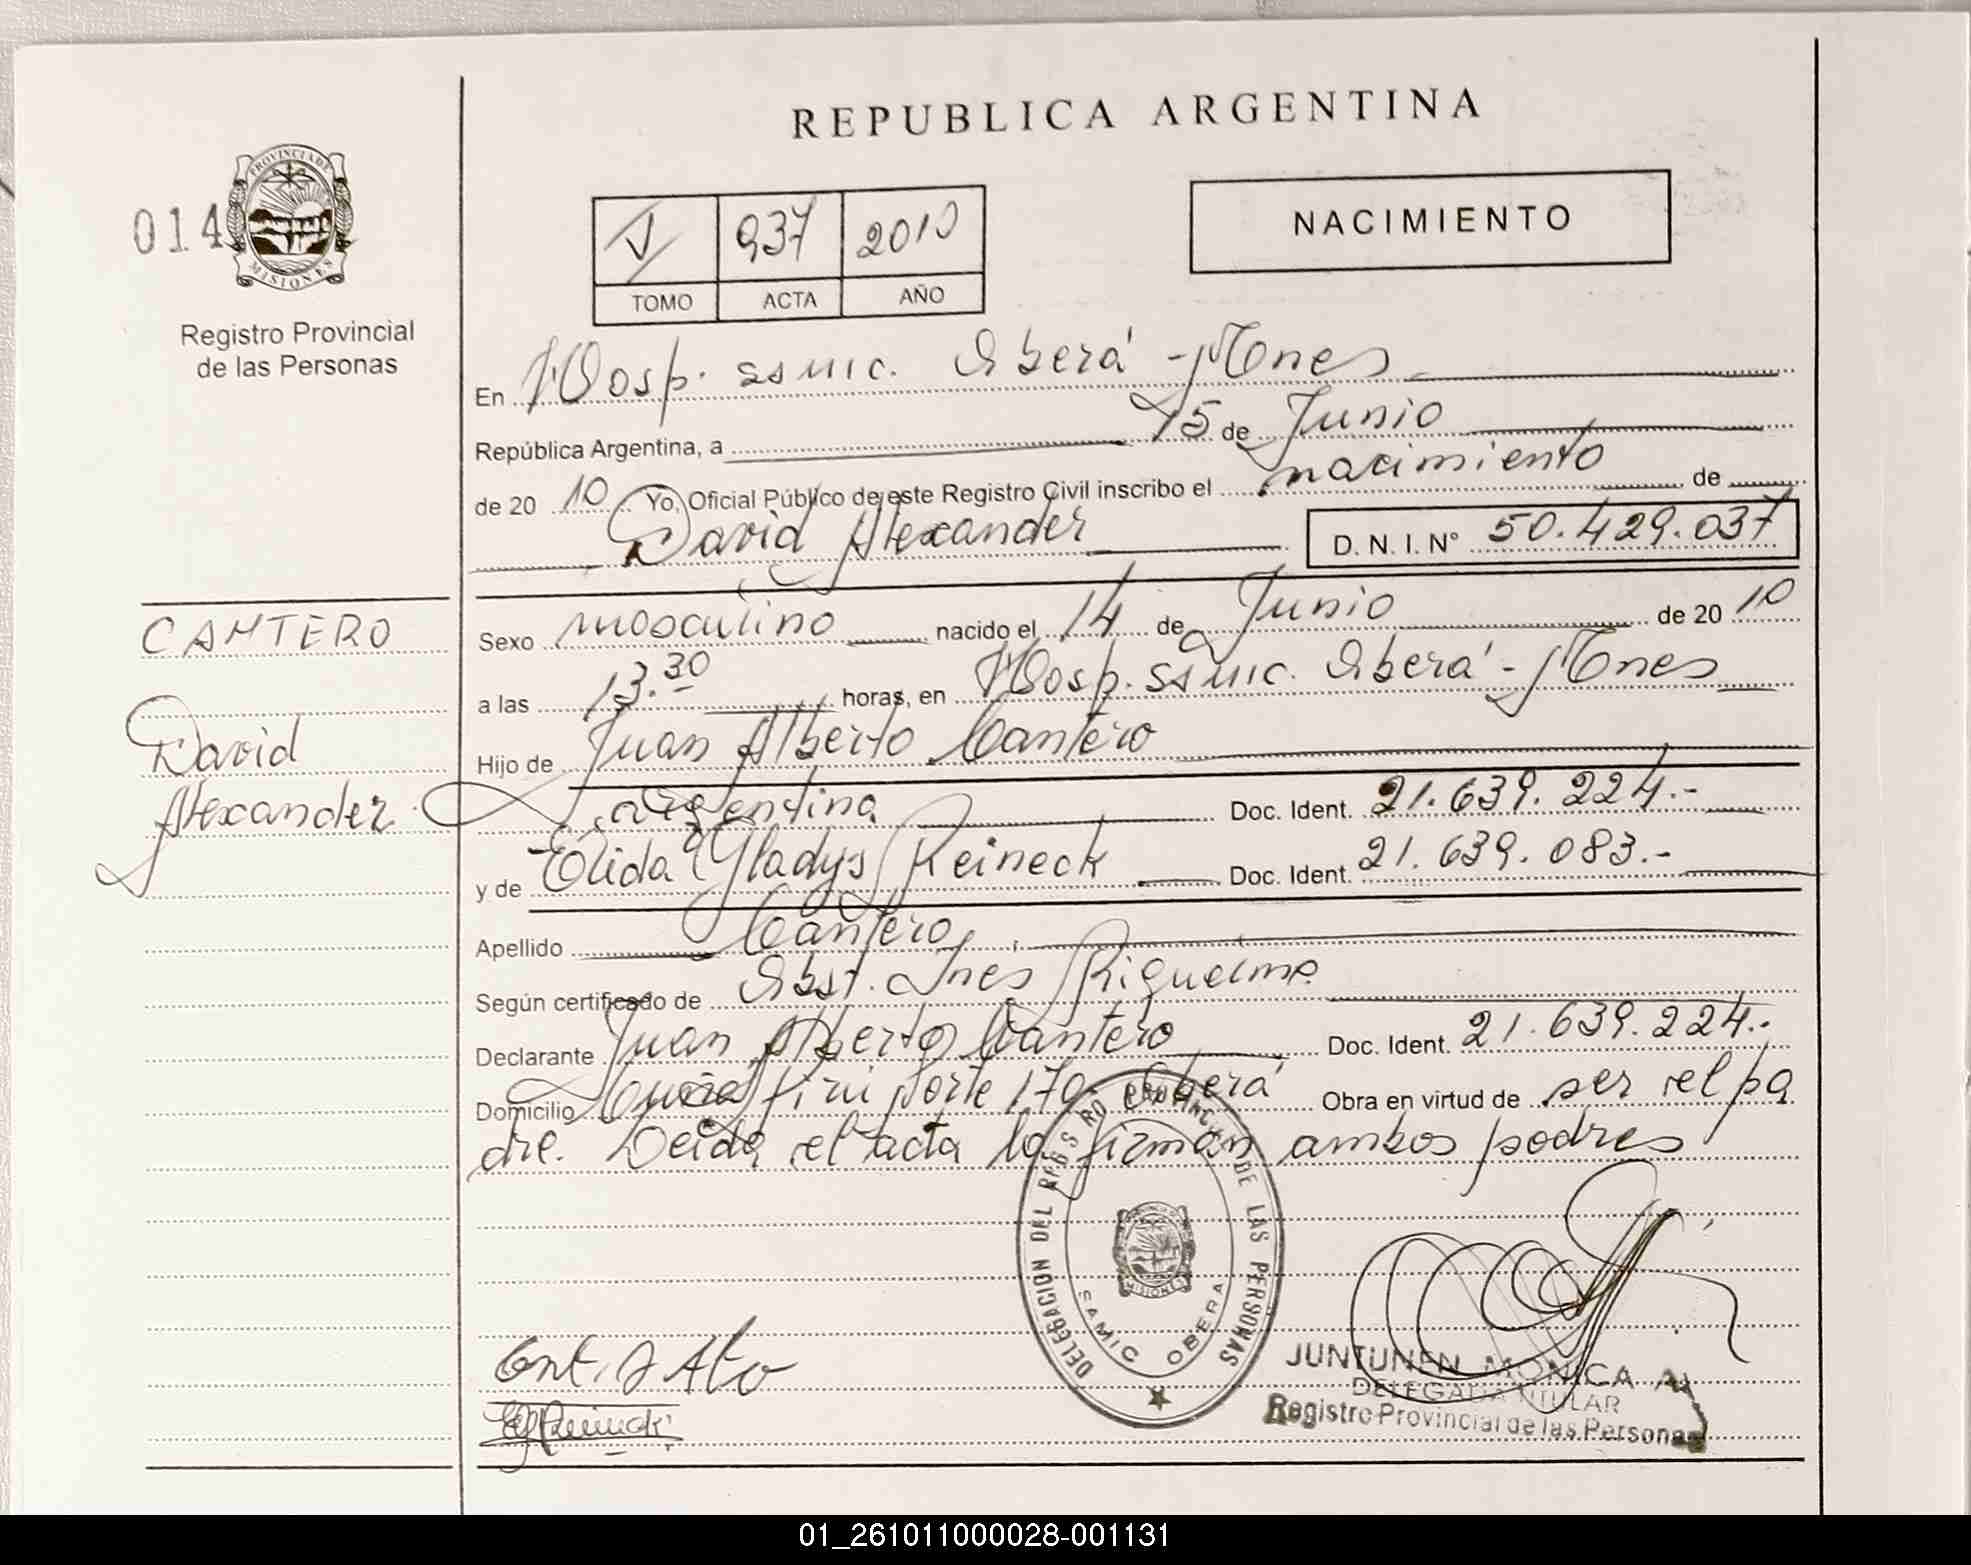 REPUBLICA ARGENTINA
014
PROVINCIA DE
MISIONES
Registro Provincial
de las Personas
937 2010
TOMO ACTA AÑO
NACIMIENTO
En Hosp. ssmic. Oberá - Mnes
República Argentina, a 15 de Junio
de 20 10 Yo, Oficial Público de este Registro Civil inscribo el nacimiento de
David Alexander D. N. I. Nº 50.429.037
CANTERO
David
Alexander
Sexo masculino nacido el 14 de Junio de 20 10
a las 13.30 horas, en Hosp. ssmic. Oberá - Mnes
Hijo de Juan Alberto Cantero
argentina Doc. Ident. 21.639.224.-
y de Elida Gladys Reineck Doc. Ident. 21.639.083.-
Apellido Cantero
Según certificado de Obst. Ines Riquelme
Declarante Juan Alberto Cantero Doc. Ident. 21.639.224.-
Domicilio 170 Oberá Obra en virtud de ser el pa
dre. Leida el acta la firman ambos padres
DELEGACION DEL REGISTRO PROVINCIAL DE LAS PERSONAS
MISIONES
SAMIC OBERA
JUNTUNEN MONICA A.
DELEGADA TITULAR
Registro Provincial de las Personas
01_261011000028-001131